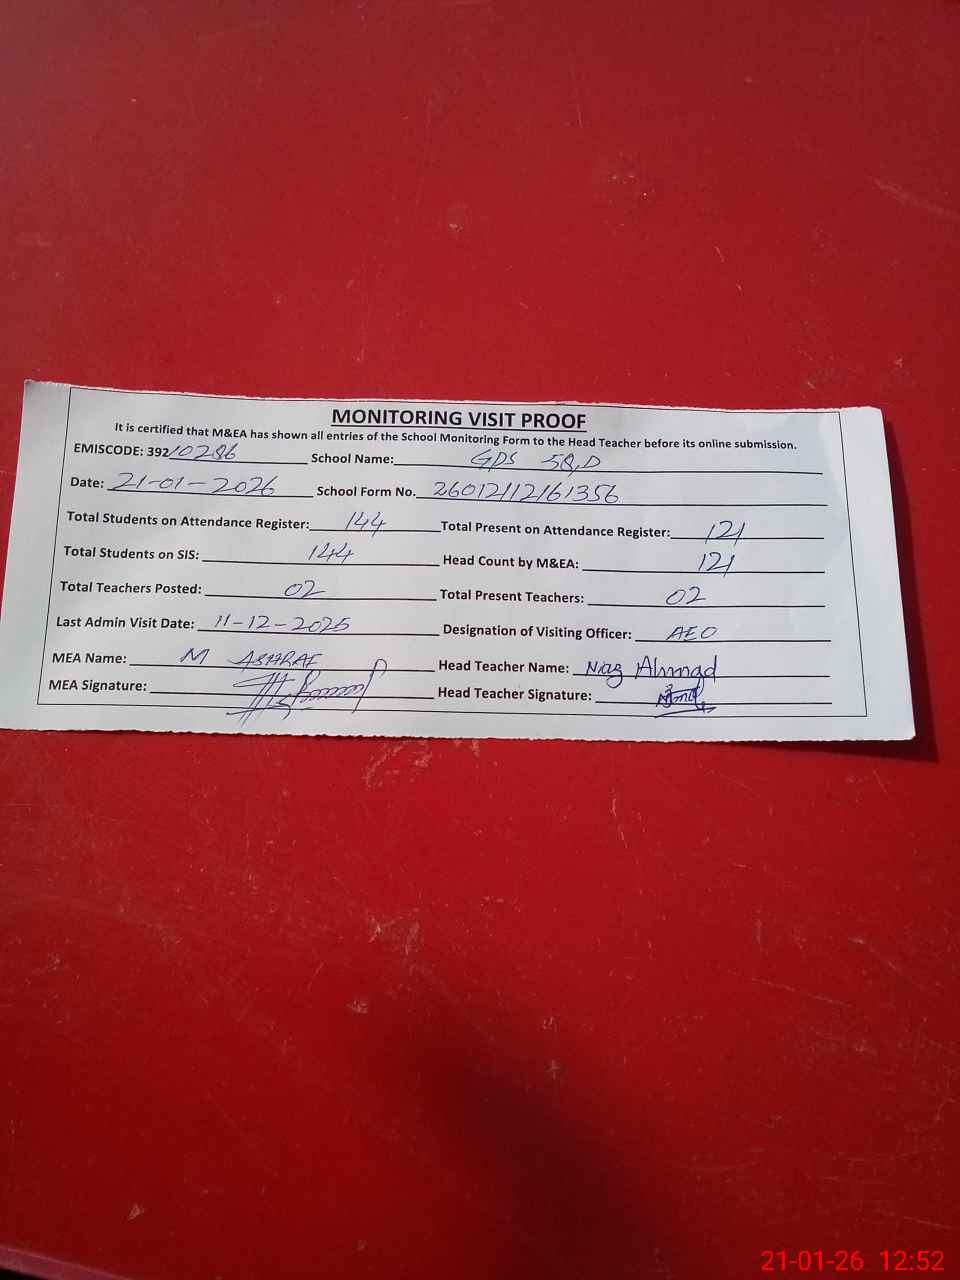 MONITORING VISIT PROOF
It is certified that M&EA has shown all entries of the School Monitoring Form to the Head Teacher before its online submission.
EMISCODE: 39210286 School Name: GPS 58,D
Date: 21-01-2026 School Form No. 26012112161356
Total Students on Attendance Register: 144 Total Present on Attendance Register: 121
Total Students on SIS: 144 Head Count by M&EA: 121
Total Teachers Posted: 02 Total Present Teachers: 02
Last Admin Visit Date: 11-12-2025 Designation of Visiting Officer: AEO
MEA Name: M ASHRAF Head Teacher Name: Niaz Ahmad
MEA Signature: Head Teacher Signature:
21-01-26 12:52